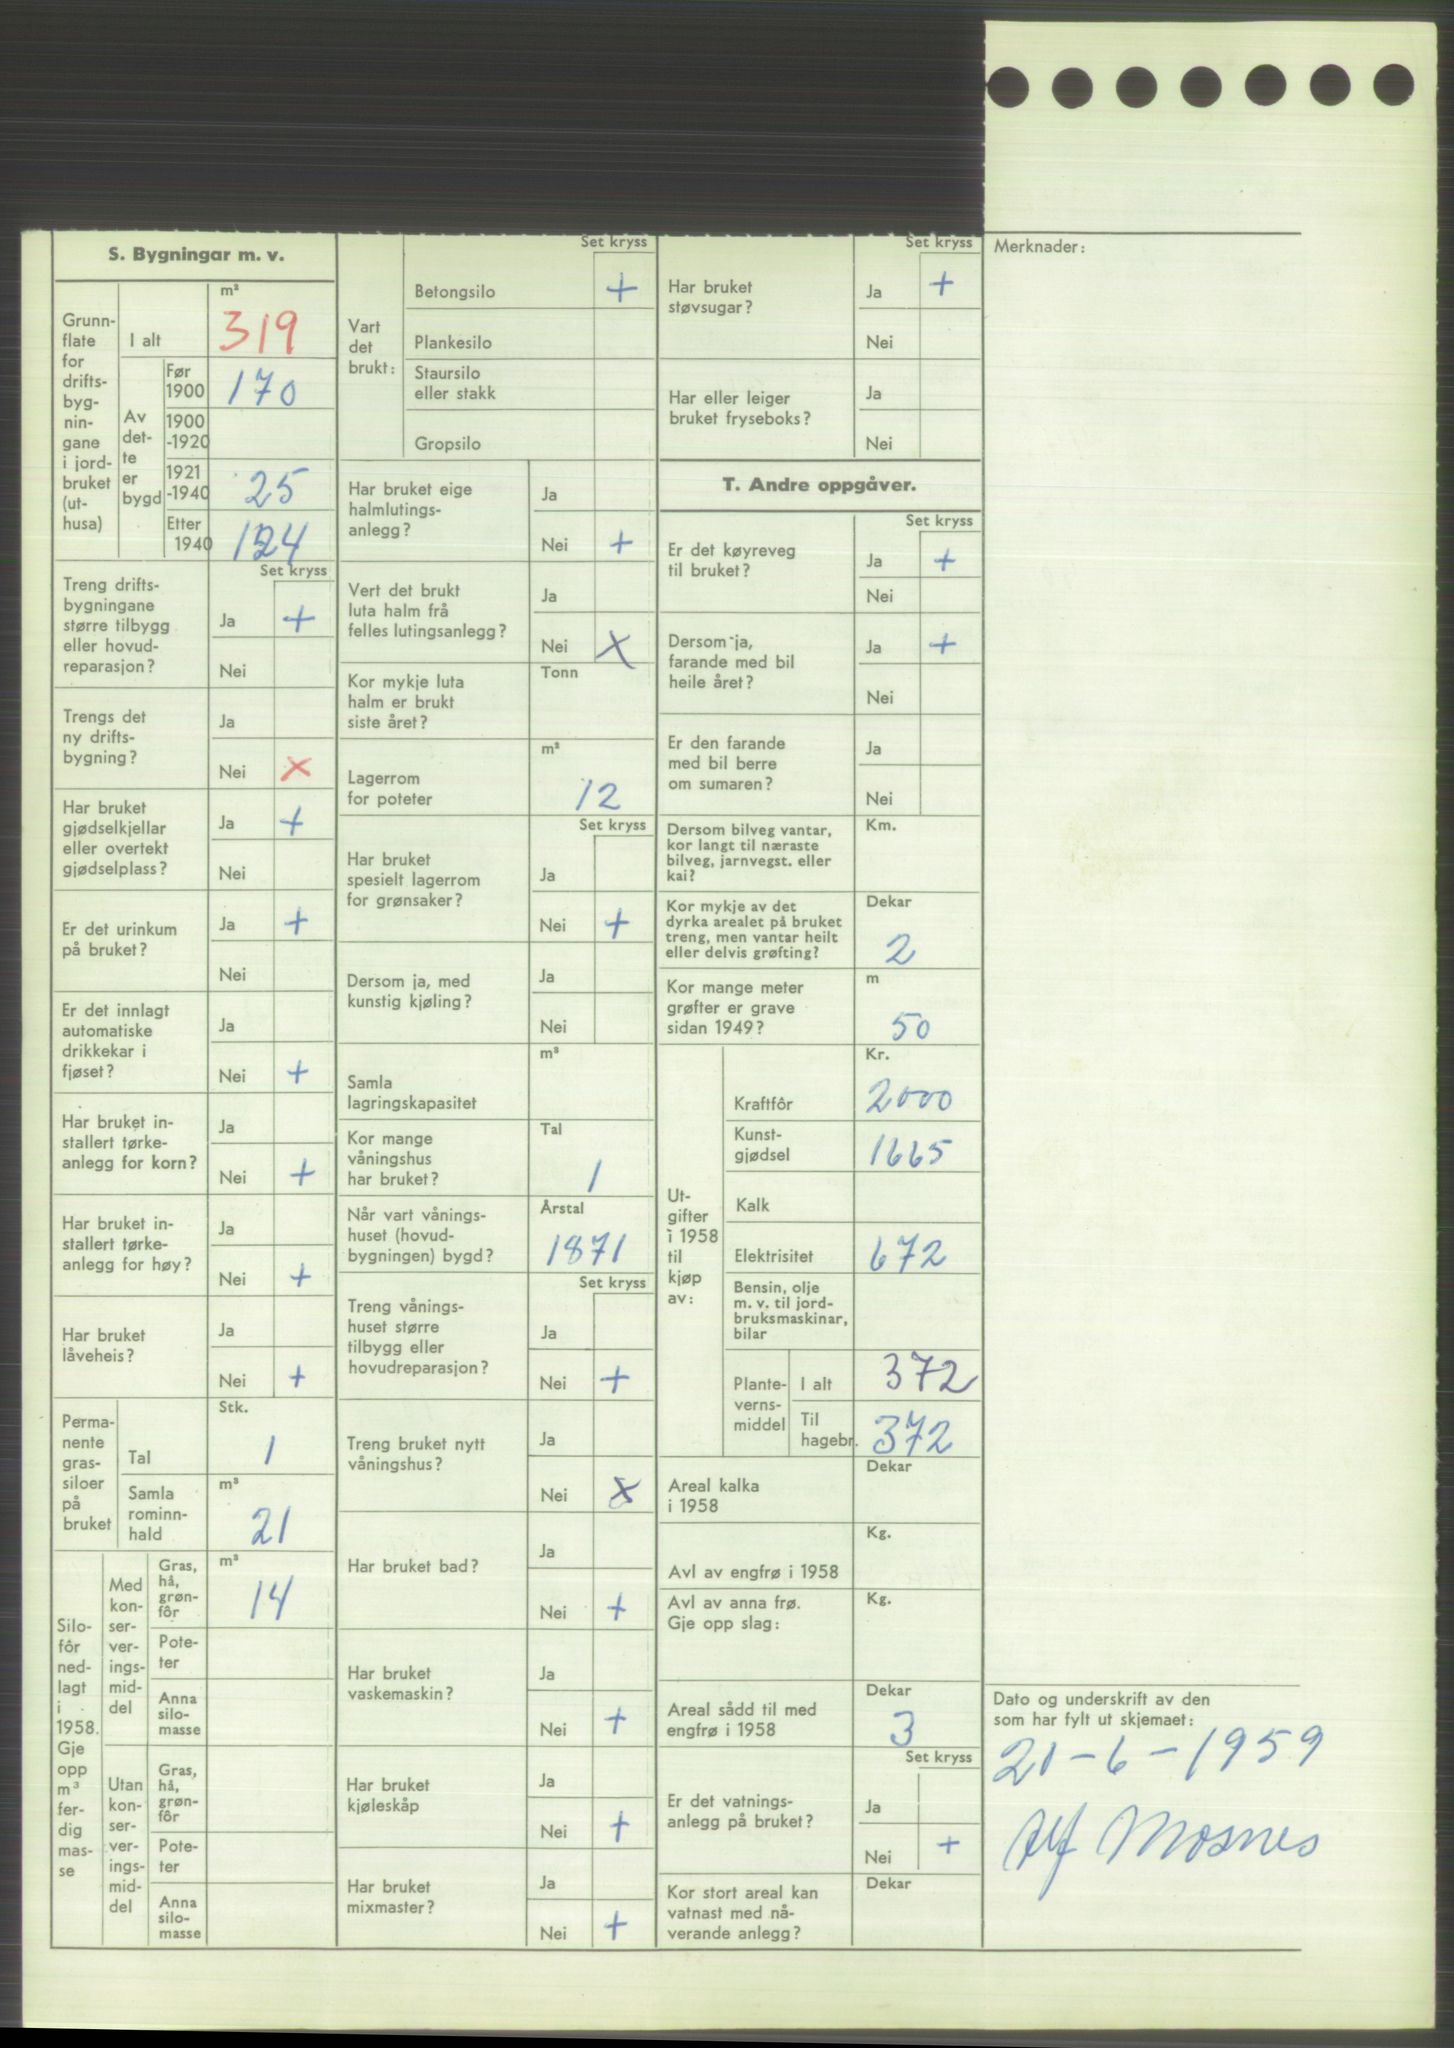 S. Bygningar m. v.
Grunn-
flate
for
drifts-
byg-
nin-
gane
i jord-
bruket
(ut-
husa)
I alt
m²
319
Av
det-
te
er
bygd
Før
1900
170
1900
-1920
1921
-1940
25
Etter
1940
124
Set kryss
Treng drifts-
bygningane
større tilbygg
eller hovud-
reparasjon?
Ja +
Nei
Trengs det
ny drifts-
bygning?
Ja
Nei x
Har bruket
gjødselkjellar
eller overtekt
gjødselplass?
Ja +
Nei
Er det urinkum
på bruket?
Ja +
Nei
Er det innlagt
automatiske
drikkekar i
fjøset?
Ja
Nei +
Har bruket in-
stallert tørke-
anlegg for korn?
Ja
Nei +
Har bruket in-
stallert tørke-
anlegg for høy?
Ja
Nei +
Har bruket
låveheis?
Ja
Nei +
Perma-
nente
gras-
siloer
på
bruket
Stk.
Tal 1
Samla
rominn-
hald
m³
21
Silo-
fôr
ned-
lagt
i
1958.
Gje
opp
m³
fer-
dig
mas-
se
Med
kon-
ser-
ver-
ings-
mid-
del
Gras,
hå,
grøn-
fôr
m³
14
Pote-
ter
Anna
silo-
masse
Utan
kon-
ser-
ver-
ings-
mid-
del
Gras,
hå,
grøn-
fôr
Pote-
ter
Anna
silo-
masse
Vart
det
brukt:
Set kryss
Betongsilo +
Plankesilo
Staursilo
eller stakk
Gropsilo
Har bruket eige
halmlutings-
anlegg?
Ja
Nei +
Vert det brukt
luta halm frå
felles lutingsanlegg?
Ja
Nei X
Kor mykje luta
halm er brukt
siste året?
Tonn
Lagerrom
for poteter
m²
12
Set kryss
Har bruket
spesielt lagerrom
for grønsaker?
Ja
Nei +
Dersom ja, med
kunstig kjøling?
Ja
Nei
Samla
lagringskapasitet
m³
Kor mange
våningshus
har bruket?
Tal
1
Når vart vånings-
huset (hovud-
bygningen) bygd?
Årstal
1871
Set kryss
Treng vånings-
huset større
tilbygg eller
hovudreparasjon?
Ja
Nei +
Treng bruket nytt
våningshus?
Ja
Nei x
Har bruket bad?
Ja
Nei +
Har bruket
vaskemaskin?
Ja
Nei +
Har bruket
kjøleskåp
Ja
Nei +
Har bruket
mixmaster?
Ja
Nei +
Set kryss
Har bruket
støvsugar?
Ja +
Nei
Har eller leiger
bruket fryseboks?
Ja
Nei
T. Andre oppgåver.
Set kryss
Er det køyreveg
til bruket?
Ja +
Nei
Dersom ja,
farande med bil
heile året?
Ja +
Nei
Er den farande
med bil berre
om sumaren?
Ja
Nei
Dersom bilveg vantar,
kor langt til næraste
bilveg, jarnvegst. eller
kai?
Km.
Kor mykje av det
dyrka arealet på bruket
treng, men vantar heilt
eller delvis grøfting?
Dekar
2
Kor mange meter
grøfter er grave
sidan 1949?
m
50
Ut-
gifter
i 1958
til
kjøp
av:
Kr.
Kraftfôr 2000
Kunst-
gjødsel 1665
Kalk
Elektrisitet 672
Bensin, olje
m. v. til jord-
bruksmaskinar,
bilar
Plante-
verns-
middel
I alt 372
Til
hagebr. 372
Areal kalka
i 1958
Dekar
Avl av engfrø i 1958
Kg.
Avl av anna frø.
Gje opp slag:
Kg.
Areal sådd til med
engfrø i 1958
Dekar
3
Set kryss
Er det vatnings-
anlegg på bruket?
Ja
Nei +
Kor stort areal kan
vatnast med nå-
verande anlegg?
Dekar
Merknader:
Dato og underskrift av den
som har fylt ut skjemaet:
21-6-1959
Alf Mosnes